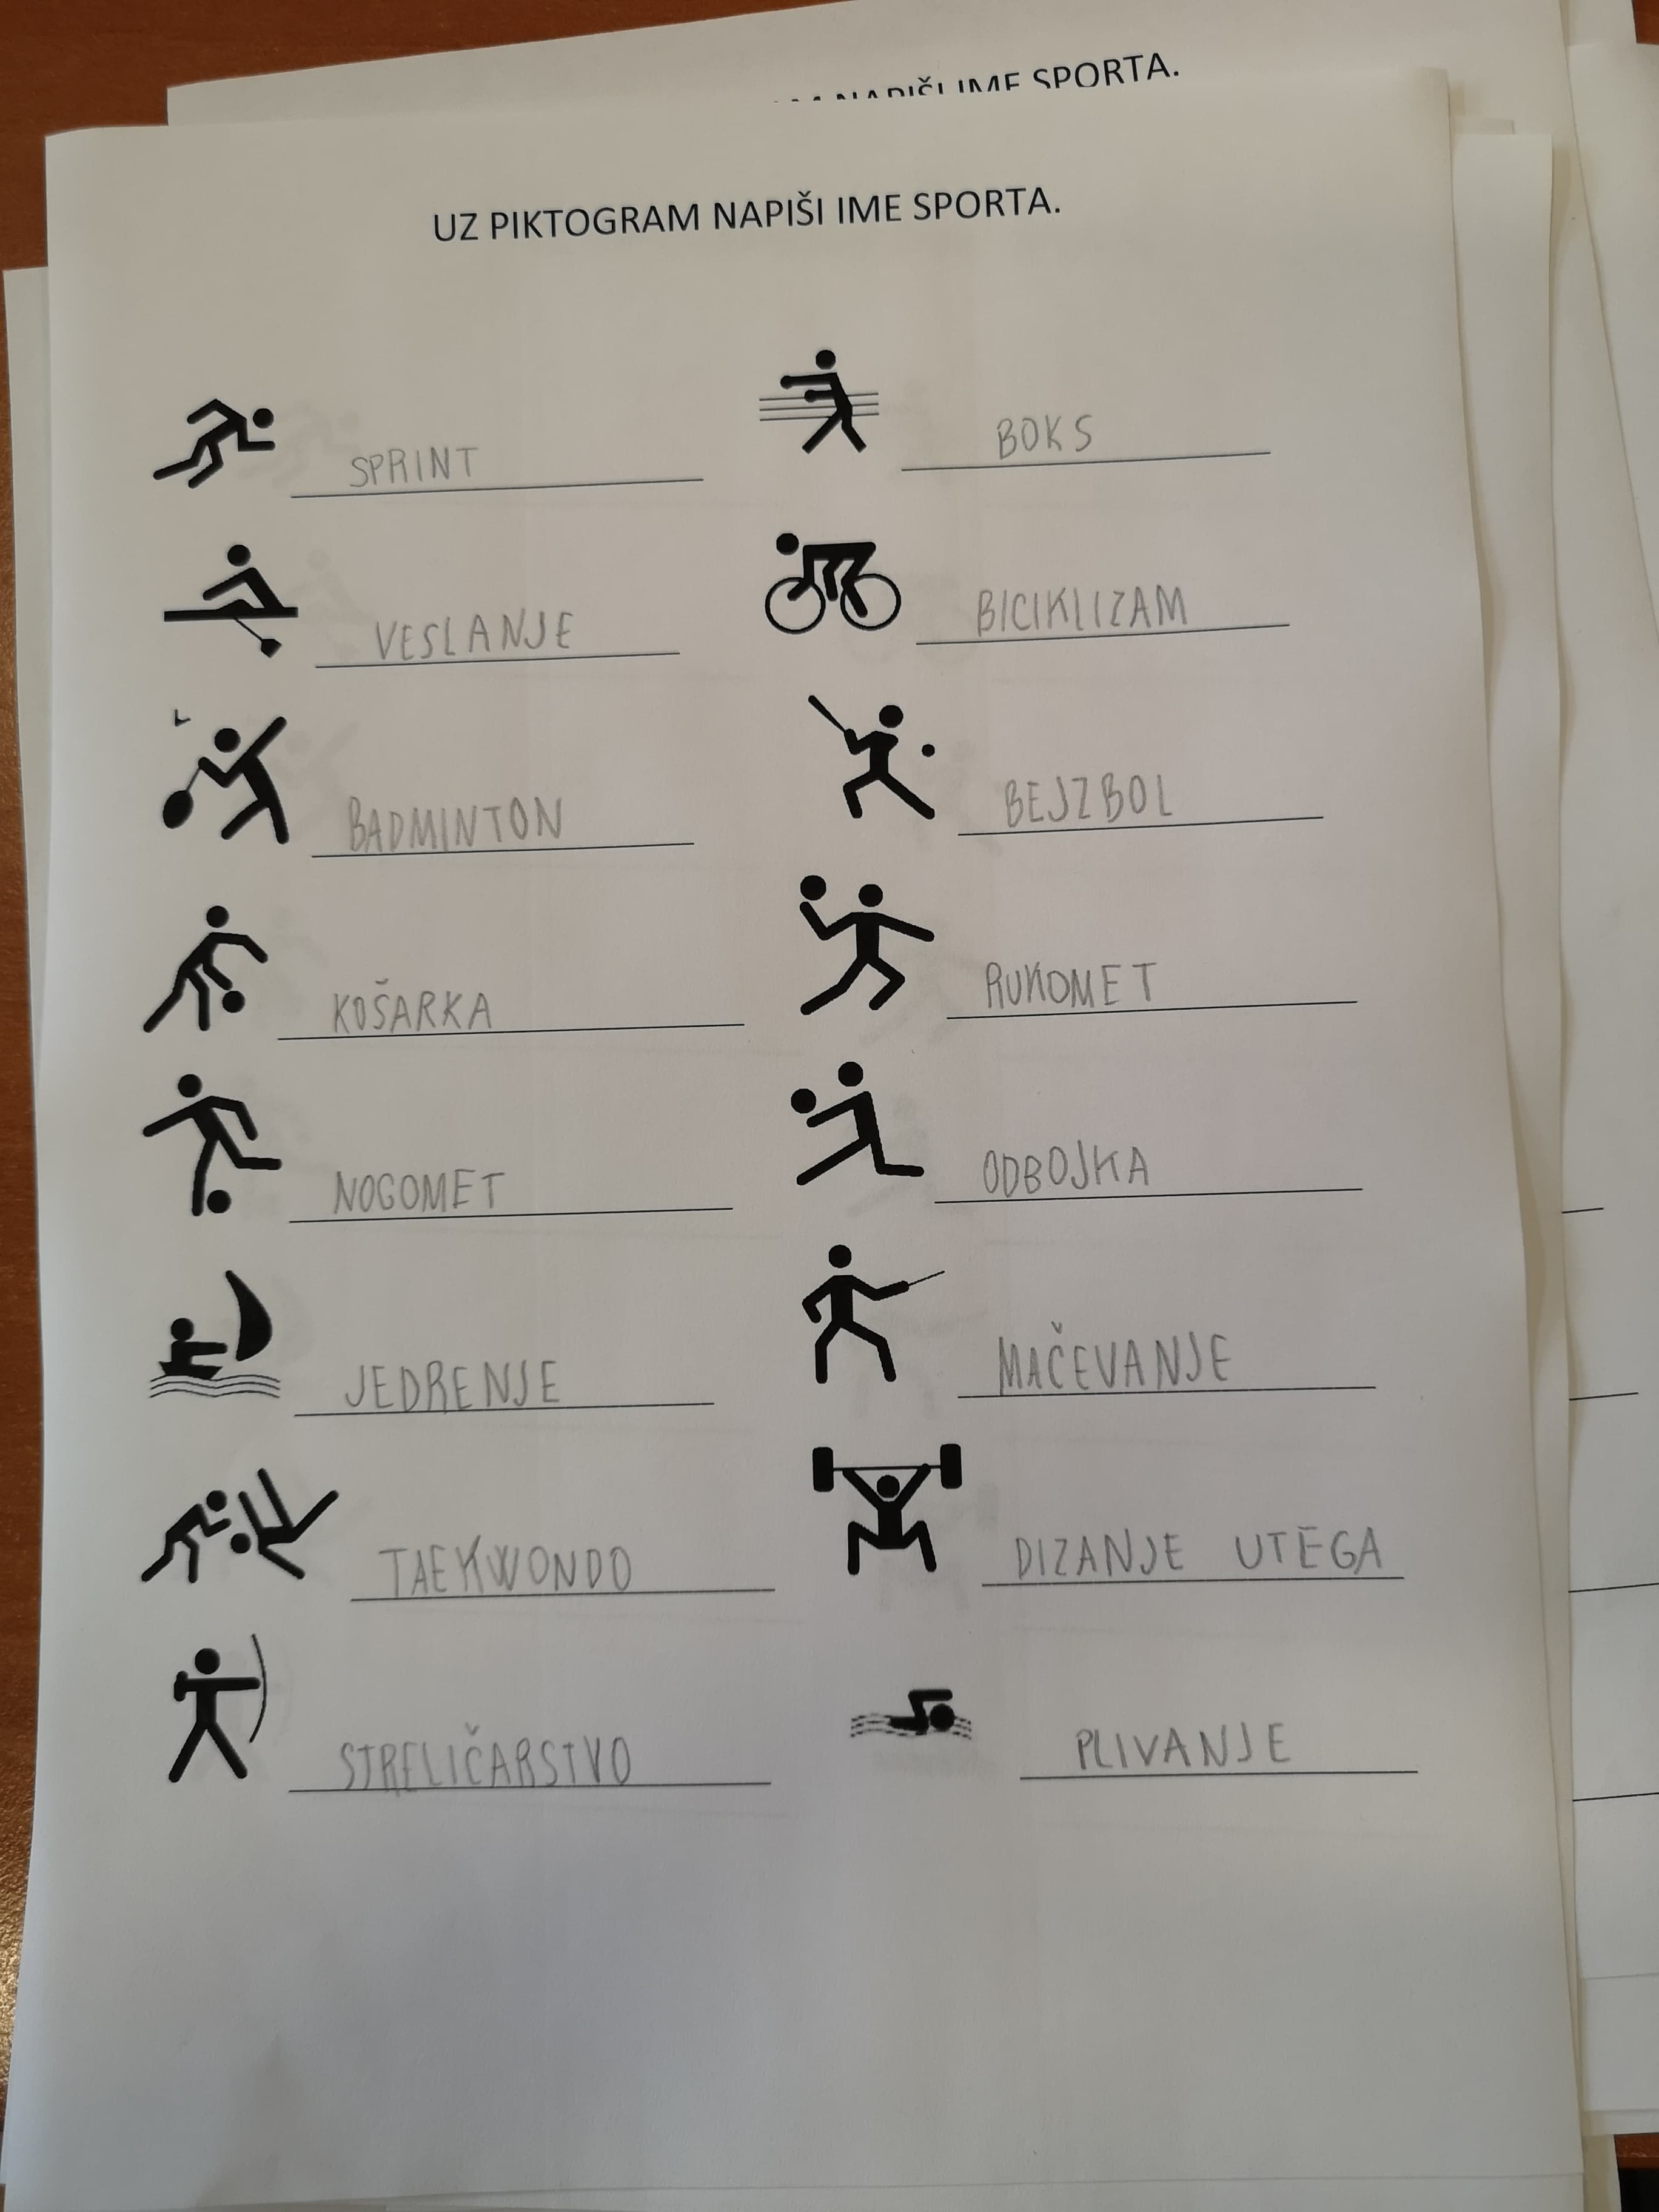 NAPIŠI IME SPORTA.
UZ PIKTOGRAM NAPIŠI IME SPORTA.
SPRINT
BOKS
VESLANJE
BICIKLIZAM
BADMINTON
BEJZBOL
KOŠARKA
RUKOMET
NOGOMET
ODBOJKA
JEDRENJE
MAČEVANJE
TAEKWONDO
DIZANJE UTEGA
STRELIČARSTVO
PLIVANJE